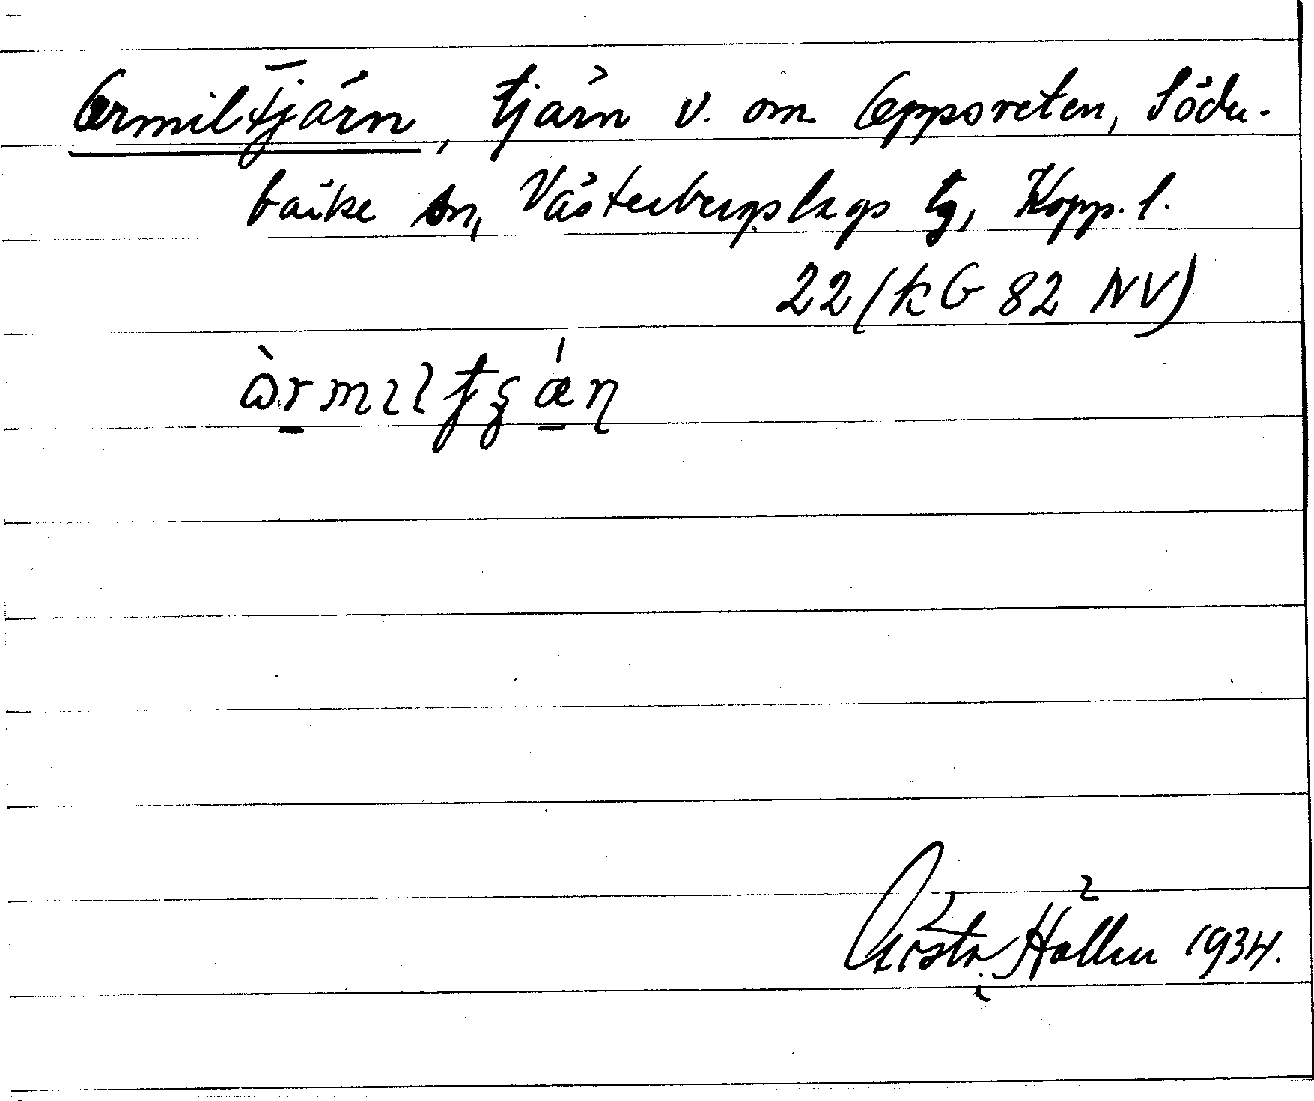 Ormiltjärn, tjärn v. om Opporeten, Söder-
bärke sn, Västerbergslags tg, Kopp. l.
22 (kG 82 NV)
Gösta Hallén 1934.